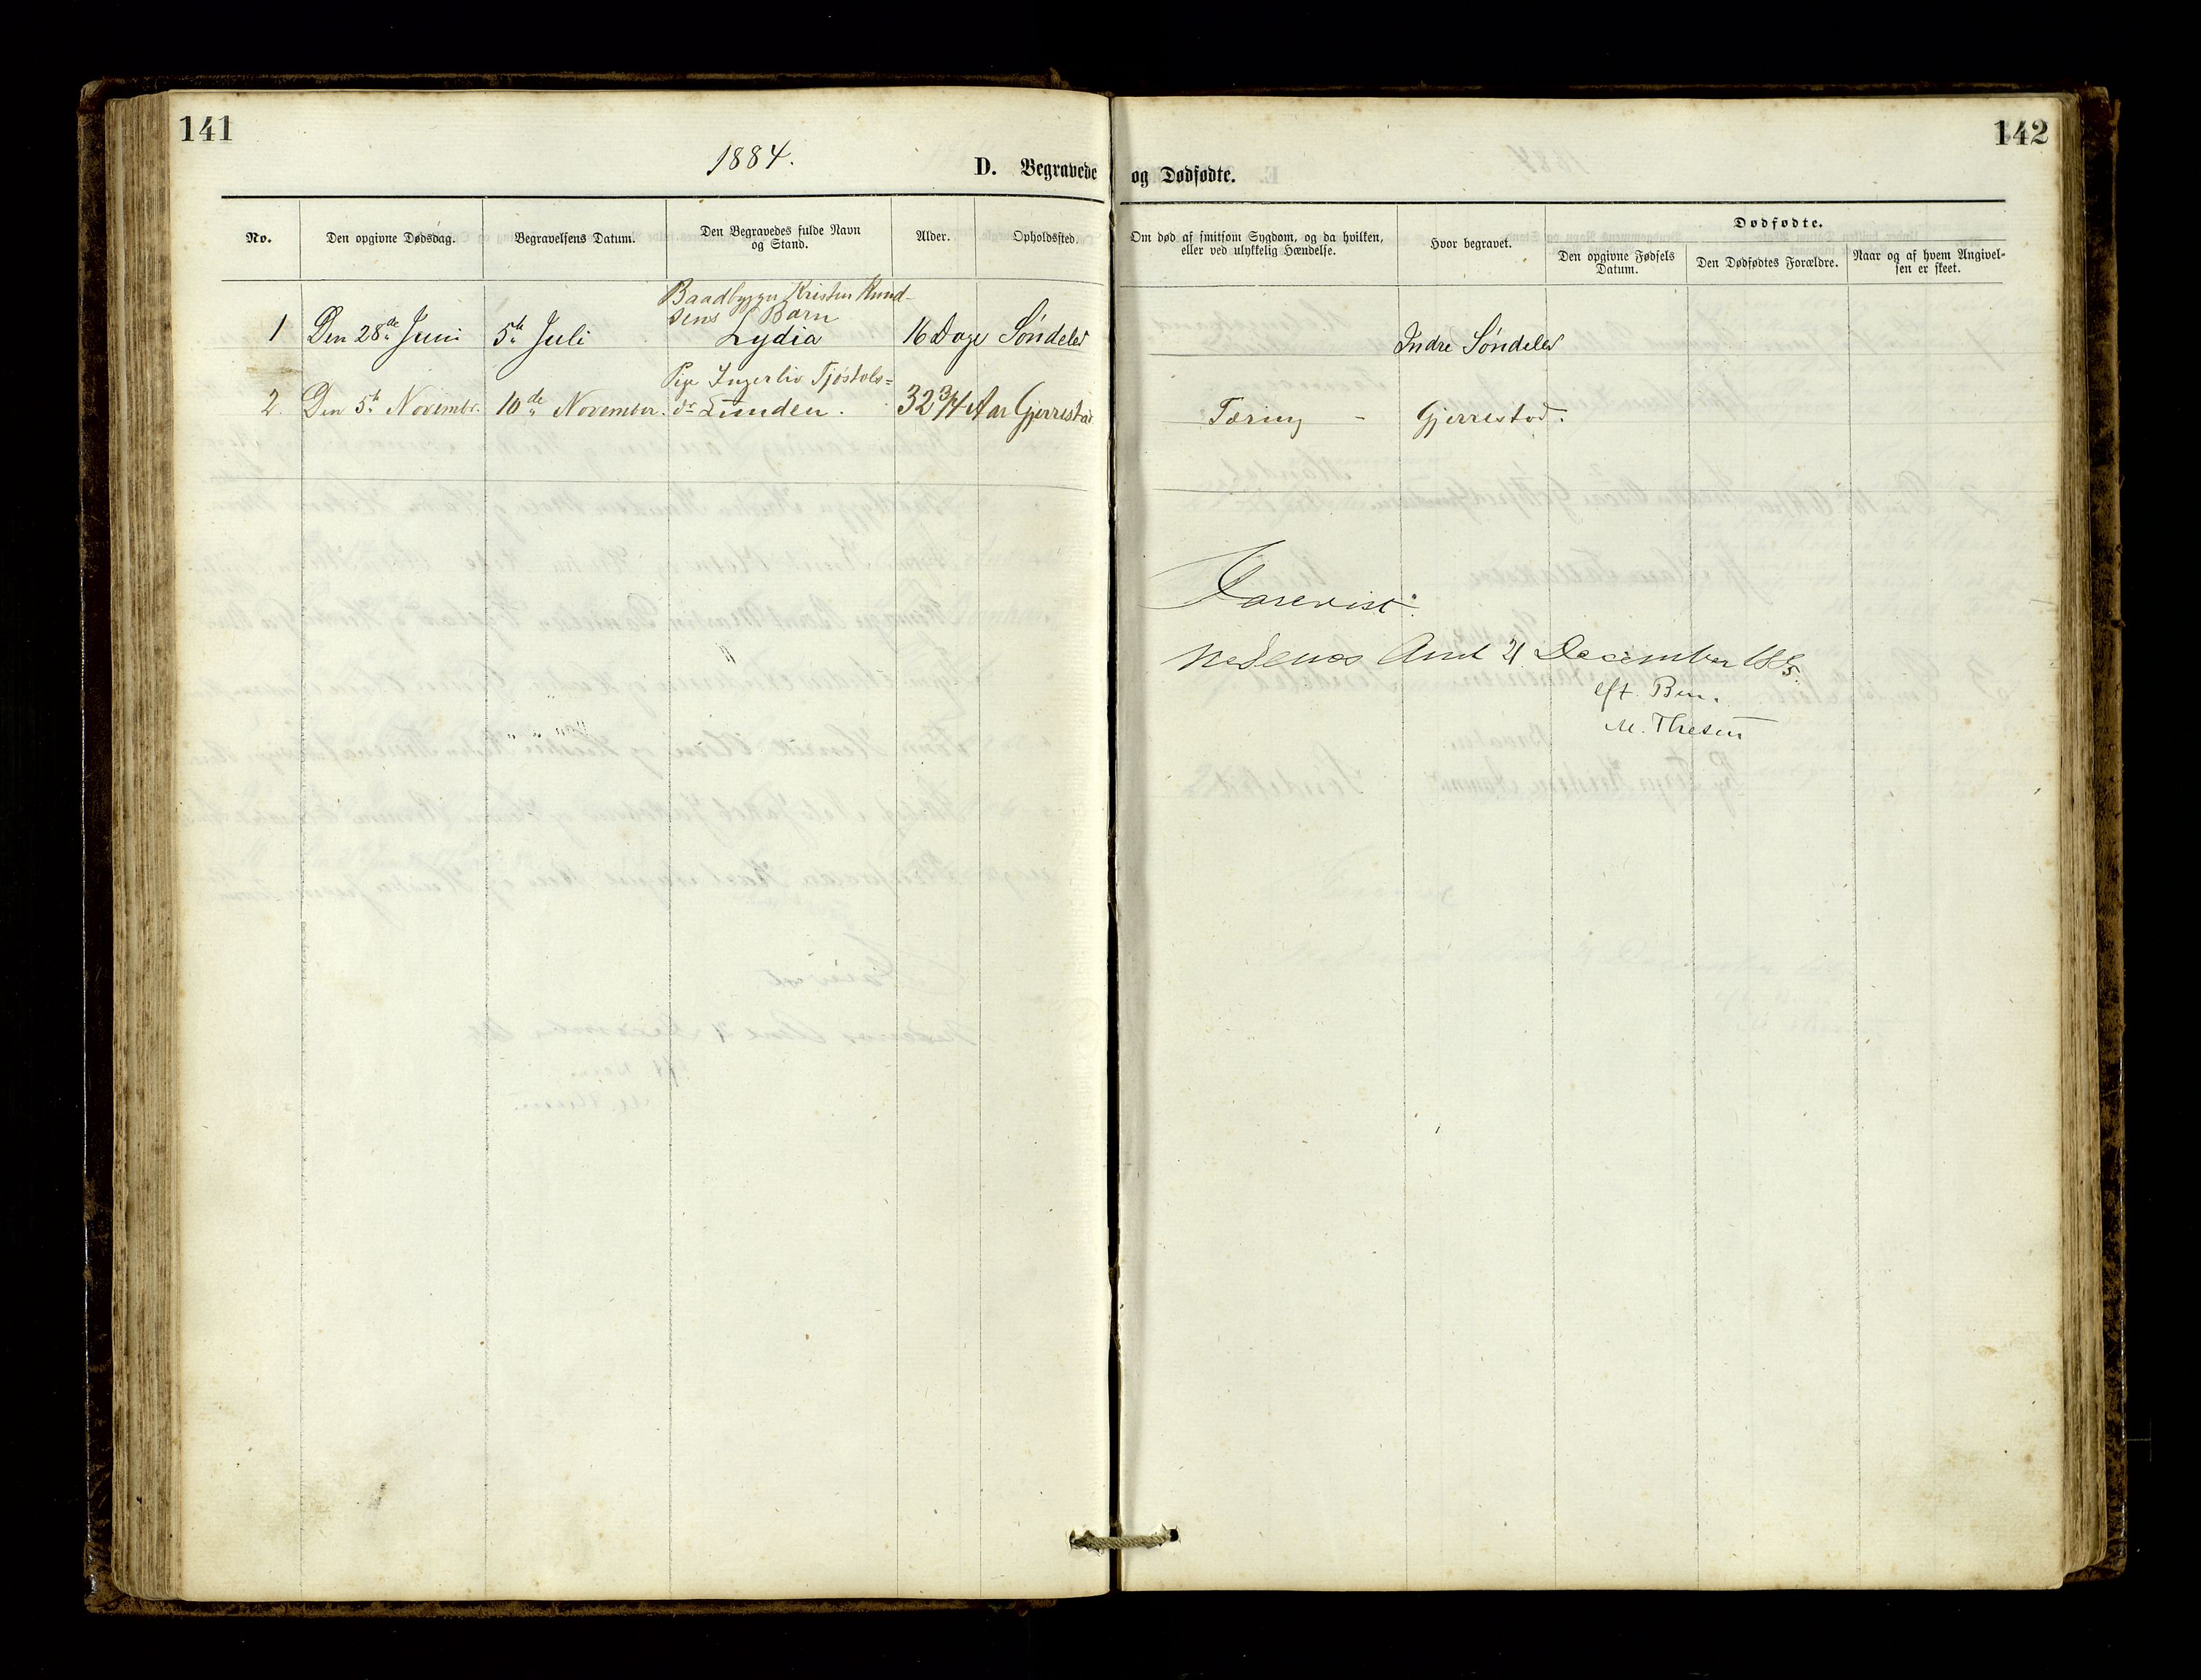 141
142
1884.
D. Begravede og Dødfødte.
No.
Den opgivne Dødsdag.
Begravelsens Datum.
Den Begravedes fulde Navn
og Stand.
Alder.
Opholdssted.
Om død af smitsom Sygdom, og da hvilken,
eller ved ulykkelig Hændelse.
Hvor begravet.
Dødfødte.
Den opgivne Fødsels
Datum.
Den Dødfødtes Forældre.
Naar og af hvem Angivel-
sen er skeet.
Baadbygger Kristen Knud-
sens Barn
1 Den 28de Juni 5te Juli Lydia 16 Dage Søndeled Indre Søndeled
Pige Ingerliv Tjøstols=
2. Den 5te Novembr. 10de November. dr Lunden. 32 3/4 Aar Gjerrestad Tæring - Gjerrestad.
Forevist.
Nedenes Amt 21 December 1885.
eft. Bem.
M. Thesen